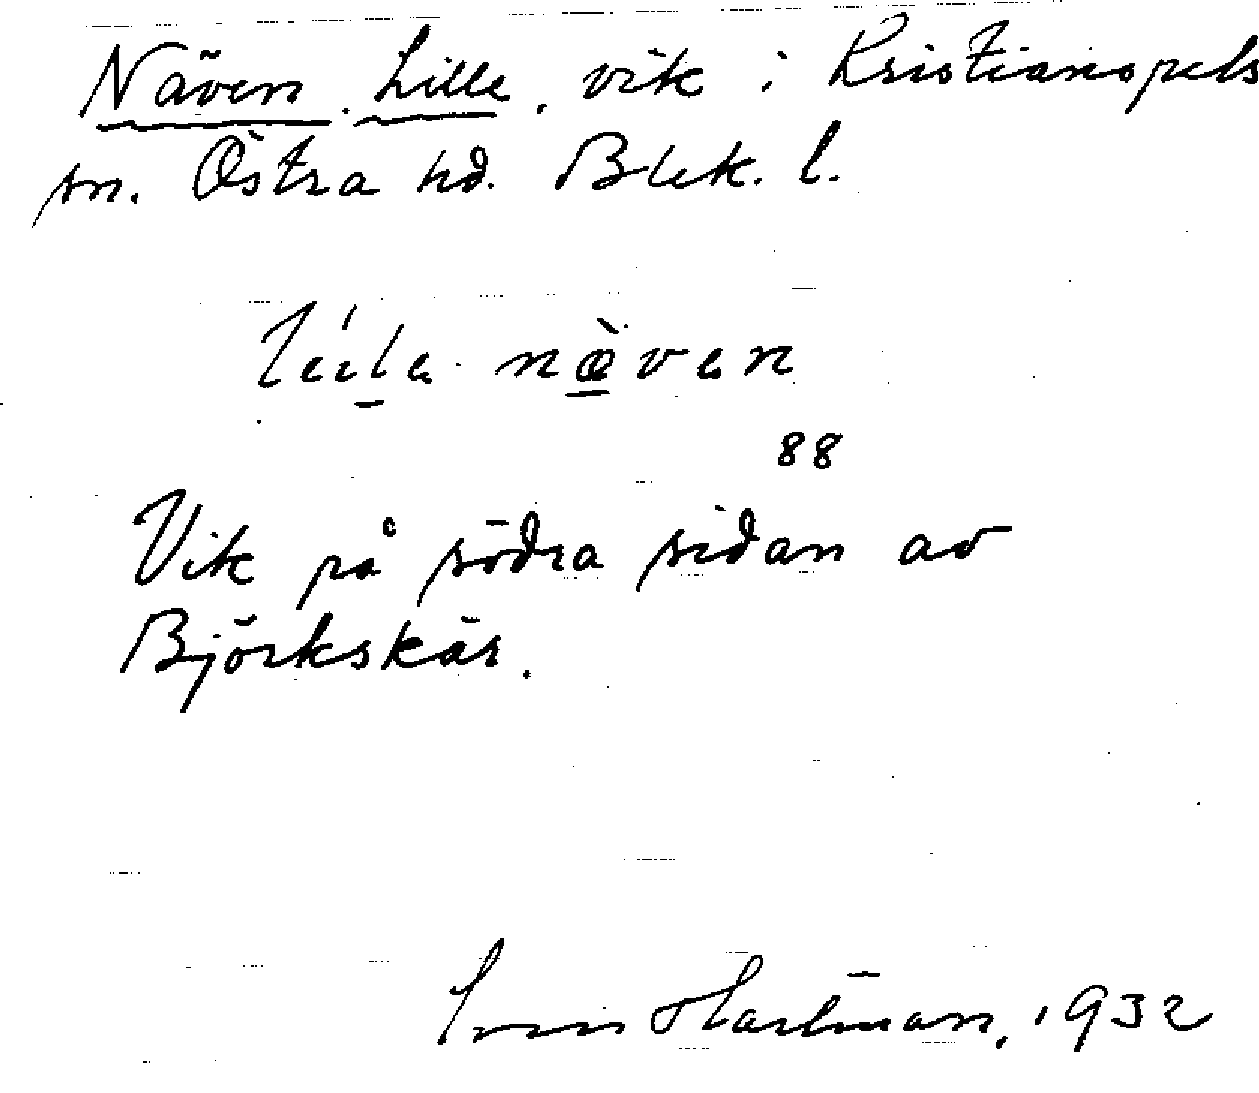 Näven, Lille, vik i Kristianopels
sn. Östra hd. Blek. l.
næ̀ven
88
Vik på södra sidan av
Björkskär.
Hartman, 1932